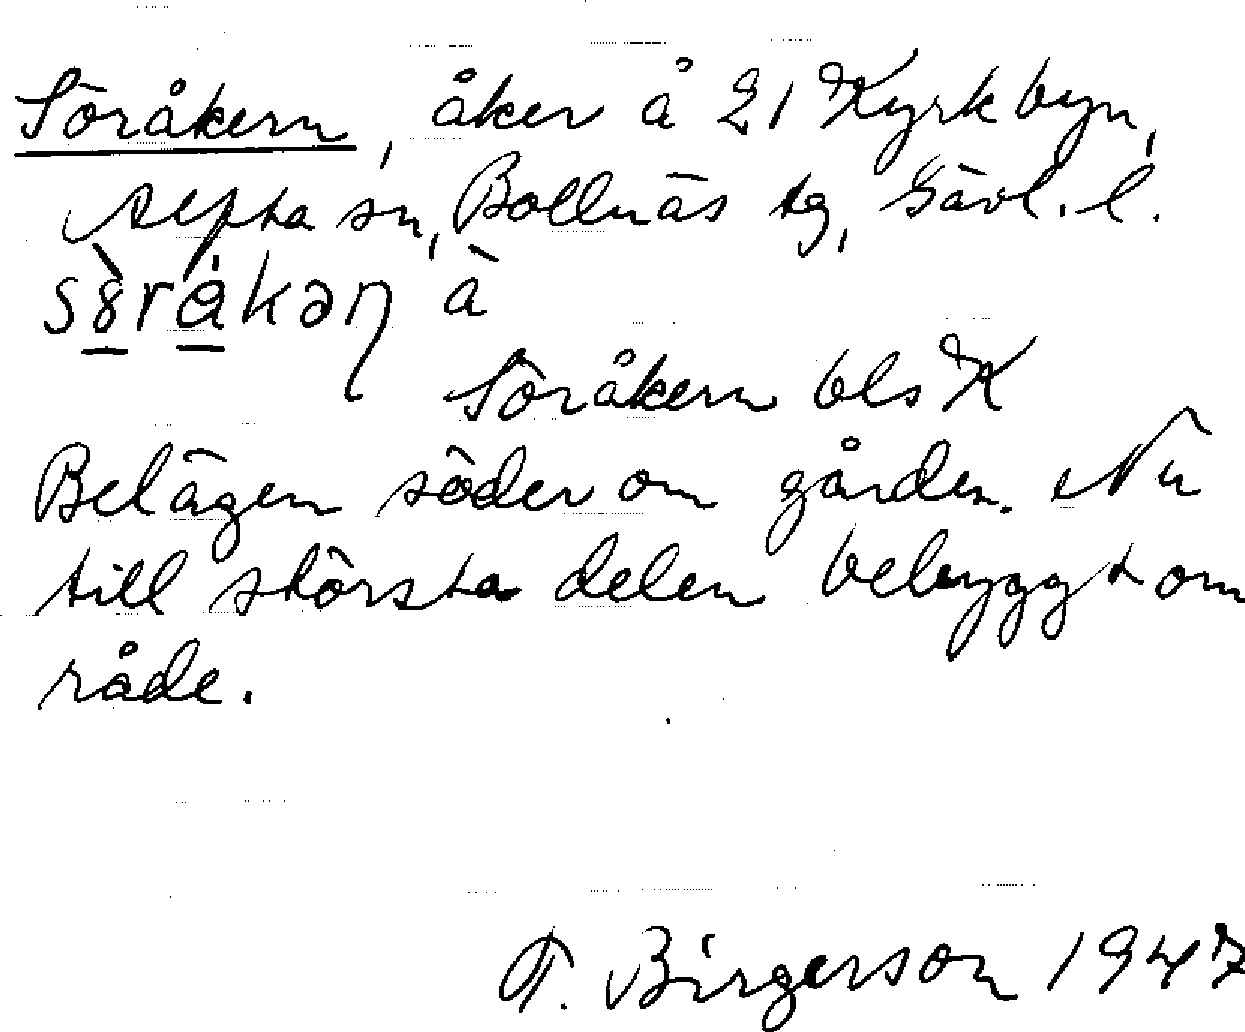 Söråkern, åker å 21 Kyrkbyn,
Alfta sn, Bollnäs tg, Gävl. l.
söråkəη à
Söråkern bls K
Belägen söder om gården. Nu
till största delen bebyggt om
råde.
F. Birgerson 1947